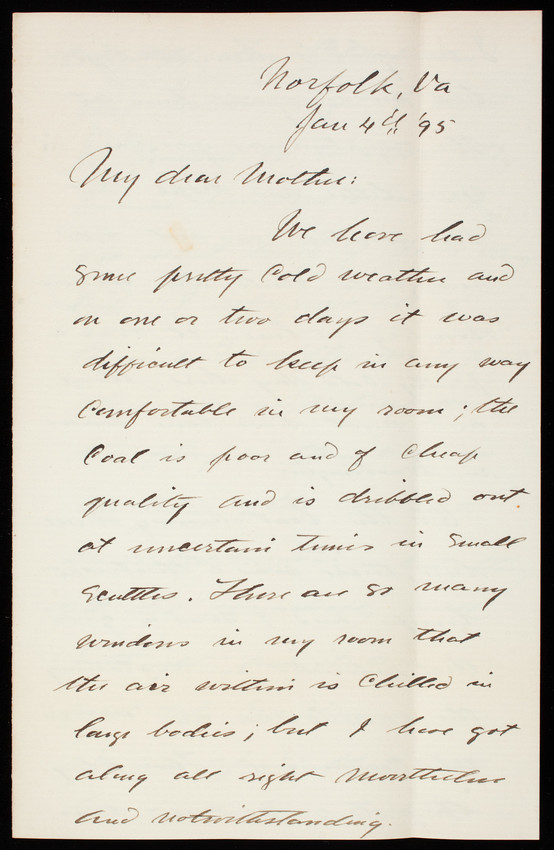 Norfolk, Va
Jan 4th '95
My dear Mother:
We have had
some pretty cold weather and
on one or two days it was
difficult to keep in any way
comfortable in my room; the
coal is poor and of cheap
quality and is dribbled out
at uncertain times in small
scuttles. There are so many
windows in my room that
the air within is chilled in
large bodies; but I have got
along all right nevertheless
and notwithstanding.